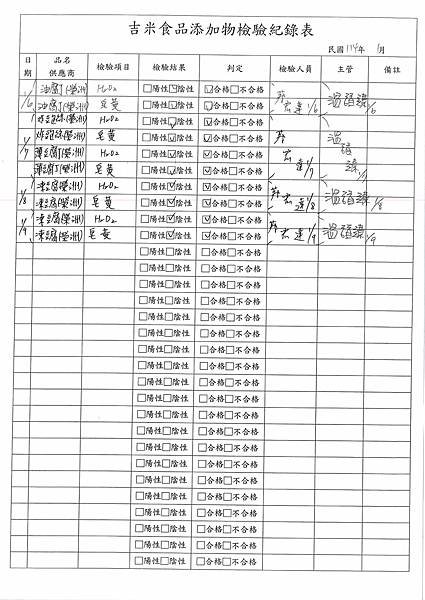 吉米食品添加物檢驗紀錄表
民國 114 年 1月
日期 品名 供應商 檢驗項目 檢驗結果 判定 檢驗人員 主管 備註
1/6 油腐丁(瑩洲) H2O2 □陽性☑陰性 ☑合格□不合格
油腐丁(瑩洲) 皂黃 □陽性☑陰性 ☑合格□不合格 宏達 1/6 1/6
1/7 H2O2 □陽性☑陰性 ☑合格□不合格
皂黃 □陽性☑陰性 ☑合格□不合格
(瑩洲) H2O2 □陽性☑陰性 ☑合格□不合格
(瑩洲) 皂黃 □陽性☑陰性 ☑合格□不合格 宏達 1/7 1/7
1/8 凍豆腐(瑩洲) H2O2 □陽性☑陰性 ☑合格□不合格
凍豆腐(瑩洲) 皂黃 □陽性☑陰性 ☑合格□不合格 宏達 1/8 1/8
1/9 凍豆腐(瑩洲) H2O2 □陽性☑陰性 ☑合格□不合格
凍豆腐(瑩洲) 皂黃 □陽性☑陰性 ☑合格□不合格 宏達 1/9 1/9
□陽性□陰性 □合格□不合格
□陽性□陰性 □合格□不合格
□陽性□陰性 □合格□不合格
□陽性□陰性 □合格□不合格
□陽性□陰性 □合格□不合格
□陽性□陰性 □合格□不合格
□陽性□陰性 □合格□不合格
□陽性□陰性 □合格□不合格
□陽性□陰性 □合格□不合格
□陽性□陰性 □合格□不合格
□陽性□陰性 □合格□不合格
□陽性□陰性 □合格□不合格
□陽性□陰性 □合格□不合格
□陽性□陰性 □合格□不合格
□陽性□陰性 □合格□不合格
□陽性□陰性 □合格□不合格
□陽性□陰性 □合格□不合格
□陽性□陰性 □合格□不合格
□陽性□陰性 □合格□不合格
□陽性□陰性 □合格□不合格